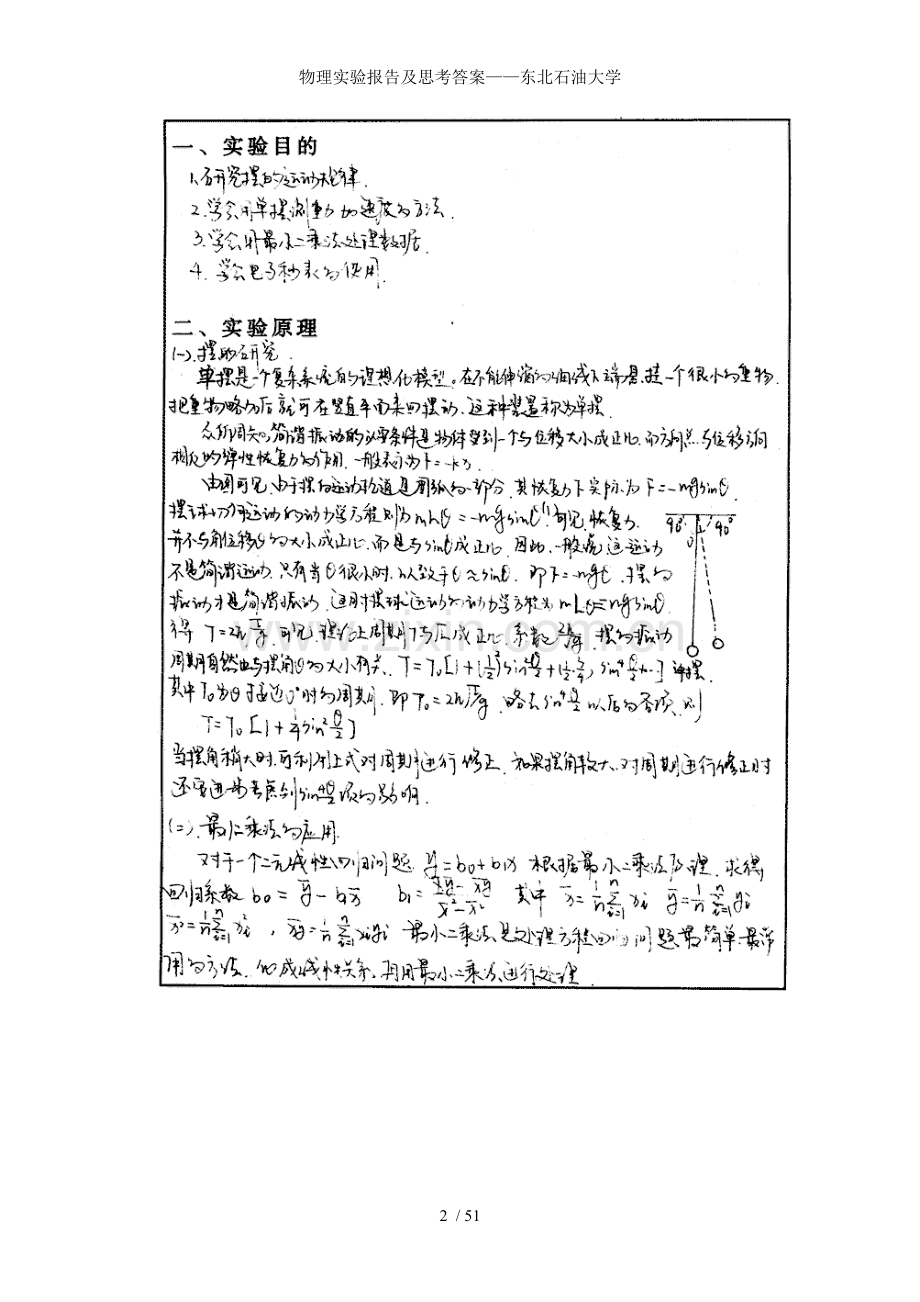 物理实验报告及思考答案——东北石油大学
一、实验目的
1.研究摆的运动规律.
2.学会用单摆测重力加速度的方法.
3.学会用最小二乘法处理数据.
4.学会电子秒表的使用.
二、实验原理
(一).摆的研究.
单摆是一个复杂系统的理想化模型。在不能伸缩的细线下端悬挂一个很小的重物.
把重物略 后就可在竖直平面来回摆动.这种装置称为单摆.
众所周知.简谐振动的必要条件是物体受到一个与位移大小成正比.而方向总与位移方向
相反的弹性恢复力的作用.一般表示为F=-kx.
由图可见.由于摆的运动轨道是圆弧的一部分.其恢复力F实际为F=-mgsinθ.
摆球切向运动的动力学方程则为mLθ=-mgsinθ(1).可见.恢复力
并不与角位移θ的大小成正比.而是与sinθ成正比.因此.一般说这运动
不是简谐运动.只有当θ很小时.以致于θ≈sinθ.即F=-mgθ.摆的
振动才是简谐振动.这时摆球运动的动力学方程为mLθ=-mgsinθ.
90° 0 90°
得 可见. 周期T与 成正比.系数 摆的振动
周期自然也与摆角θ的大小有关. 单摆.
其中T₀为θ接近0°时的周期.即 略去 以后的各项.则
T=T₀[1+¼sin²θ/2]
当摆角稍大时.可利用上式对周期进行修正.如果摆角较大.对周期进行修正时
还要进一步考虑到 项的影响.
(二).最小二乘法的应用.
对于一个二元线性回归问题.y=b₀+b₁x 根据最小二乘法原理.求得
回归系数 b₀=y̅-b₁x̅ 其中 x̅=1/n∑xi y̅=1/n∑yi
最小二乘法是处理方程回归问题最简单.最常
用的方法. 成线性关系.再用最小二乘法进行处理.
www.zixin.com.cn
2 / 51